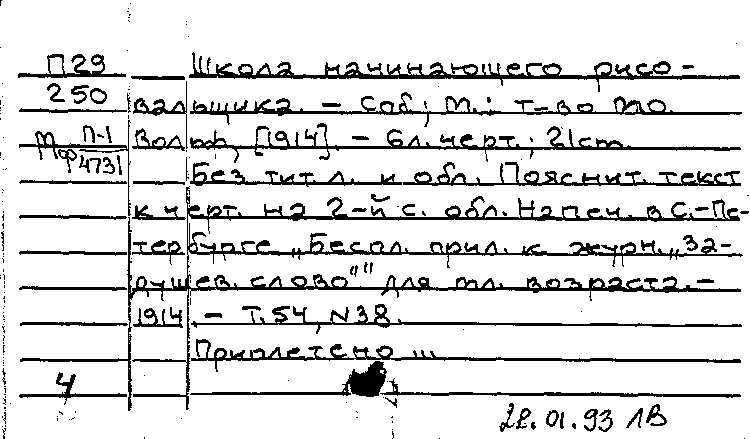 П29 Школа начинающего рисо-
250 вальщика. - Спб; М.: т-во М.О.
Мф П-1/4731 Вольф, [1914]. - 6л. черт.; 21cm.
Без тит. л. и обл. Пояснит. текст
к черт. на 2-й с. обл. Напеч. в С.-Пе-
тербурге „Беспл. прил. к журн. „За-
душев. слово"" для мл. возраста. -
1914. - Т.54, N38.
Приплетено
4
22.01.93 ЛВ